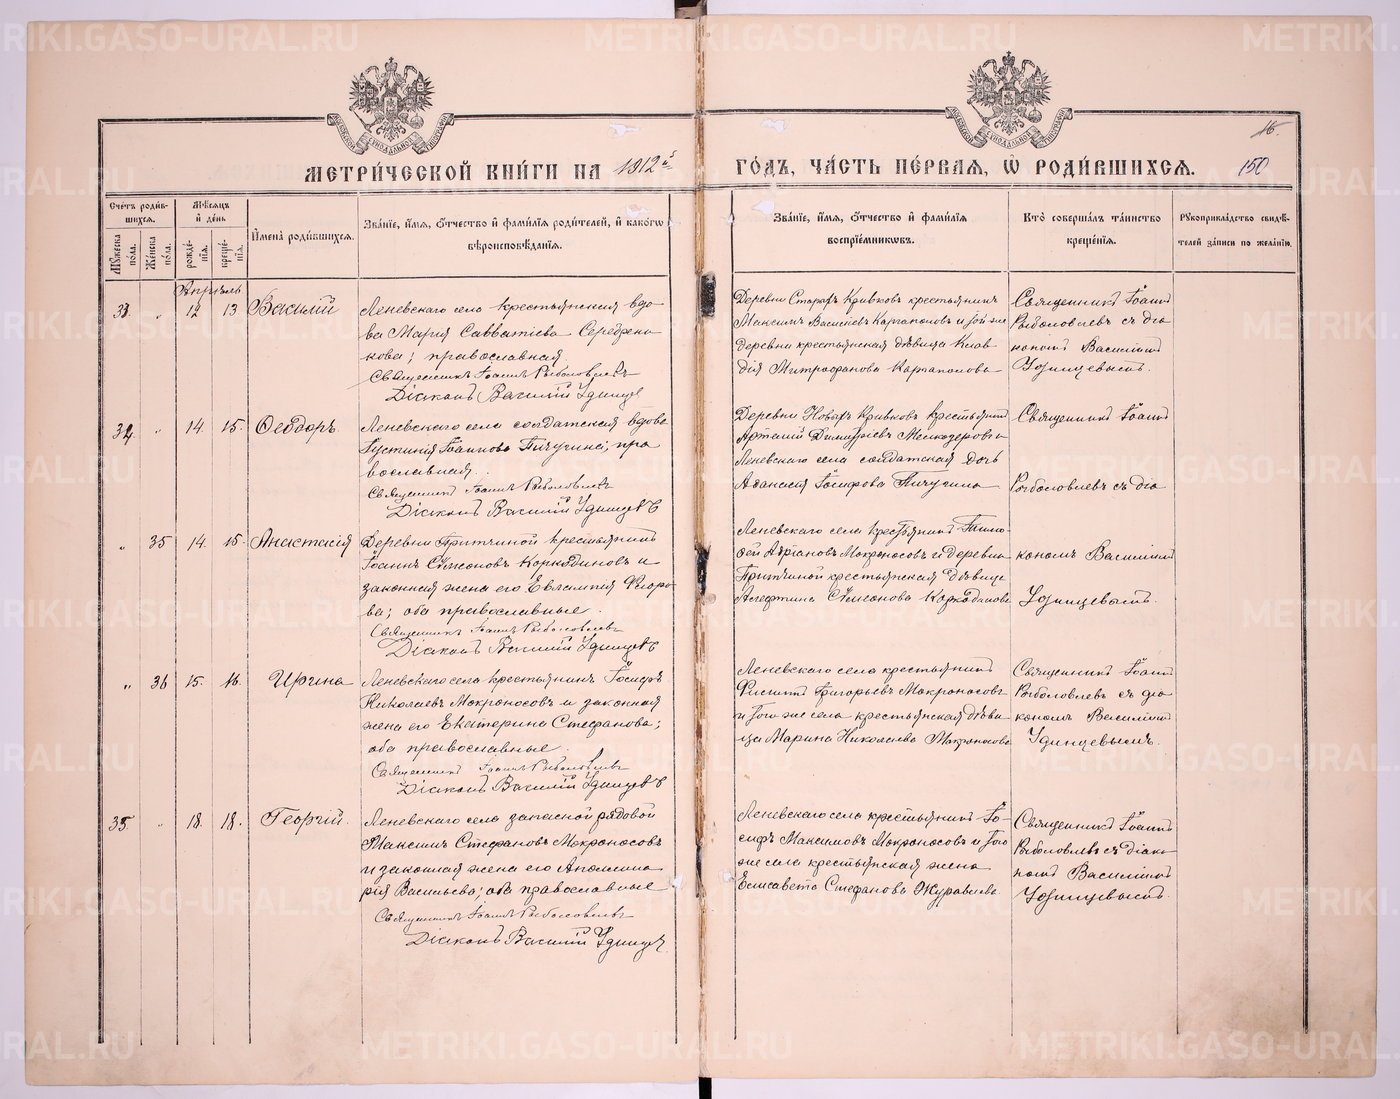 МЕТРИ́ЧЕСКОЙ КНИ́ГИ НА 1912й ГО́ДЪ, ЧА́СТЬ ПЕ́РВАЯ, Ѡ РОДИ́ВШИХСЯ.
16.
150
Сче́тъ роди́в-
шихся.
Му́жеска по́ла.
Же́нска по́ла.
Мѣ́сяцъ
и҆ де́нь
рожде́-
нїя.
креще́-
нїя.
И҆мена̀ роди́вшихся.
Зва́нїе, и҆́мя, ѻ҆́тчество и҆ фами́лїя роди́телей, и҆ како́гѡ
вѣроисповѣ́данїя.
Зва́нїе, и҆́мя, ѻ҆́тчество и҆ фами́лїя
воспрїе́мниковъ.
Кто̀ соверша́лъ та́инство
креще́нїя.
Рꙋкоприкла́дство свидѣ́-
телей за́писи по жела́нїю.
Апрѣль
33 „ 12 13 Василій
Леневскаго села крестьянская вдо-
ва Марія Савватіева Серебрени-
кова; православная.
Священникъ Іоаннъ Рыболовлевъ
Діаконъ Василій Удинцевъ
Деревни Старыхъ Кривковъ крестьянинъ
Максимъ Васильевъ Картаполовъ и той-же
деревни крестьянская дѣвица Клав-
дія Митрофанова Картаполова
Священникъ Іоаннъ
Рыболовлевъ съ діа-
кономъ Василіемъ
Удинцевымъ.
34 „ 14. 15. Ѳеодоръ.
Леневскаго села солдатская вдова
Іустинія Іоаннова Пичугина; пра-
вославная.
Священникъ Іоаннъ Рыболовлевъ
Діаконъ Василій Удинцевъ
Деревни Новыхъ Кривковъ крестьянинъ
Артемій Димитріевъ Мелкозеровъ и
Леневскаго села солдатская дочь
Аѳанасія Іосифова Пичугина
Священникъ Іоаннъ
Рыболовлевъ съ діа-
„ 35 14. 15. Анастасія
Деревни Притчиной крестьянинъ
Іоаннъ Сѵмеоновъ Коркодиновъ и
законная жена его Евлампія Ѳеодоро-
ва; оба православные.
Священникъ Іоаннъ Рыболовлевъ
Діаконъ Василій Удинцевъ
Леневскаго села крестьянинъ Тимо-
ѳей Адріановъ Мокроносовъ и деревни
Притчиной крестьянская дѣвица
Алефтина Сѵмеонова Коркодинова
кономъ Василіемъ
Удинцевымъ.
„ 36 15. 16. Ирина
Леневскаго села крестьянинъ Іосифъ
Николаевъ Мокроносовъ и законная
жена его Екатерина Стефанова;
оба православные.
Священникъ Іоаннъ Рыболовлевъ
Діаконъ Василій Удинцевъ
Леневскаго села крестьянинъ
Григорьевъ Мокроносовъ
и того же села крестьянская дѣви-
ца Марина Николаева Мокроносова
Священникъ Іоаннъ
Рыболовлевъ съ діа-
кономъ Василіемъ
Удинцевымъ.
35. „ 18. 18. Георгій.
Леневскаго села запасной рядовой
Максимъ Стефановъ Мокроносовъ
и законная жена его Аполлина-
рія Васильева; оба православные
Священникъ Іоаннъ Рыболовлевъ
Діаконъ Василій Удинцевъ.
Леневскаго села крестьянинъ Іо-
сифъ Максимовъ Мокроносовъ и того
же села крестьянская жена
Елисавета Стефанова Журавлева
Священникъ Іоаннъ
Рыболовлевъ съ діако-
номъ Василіемъ
Удинцевымъ.
METRIKI.GASO-URAL.RU